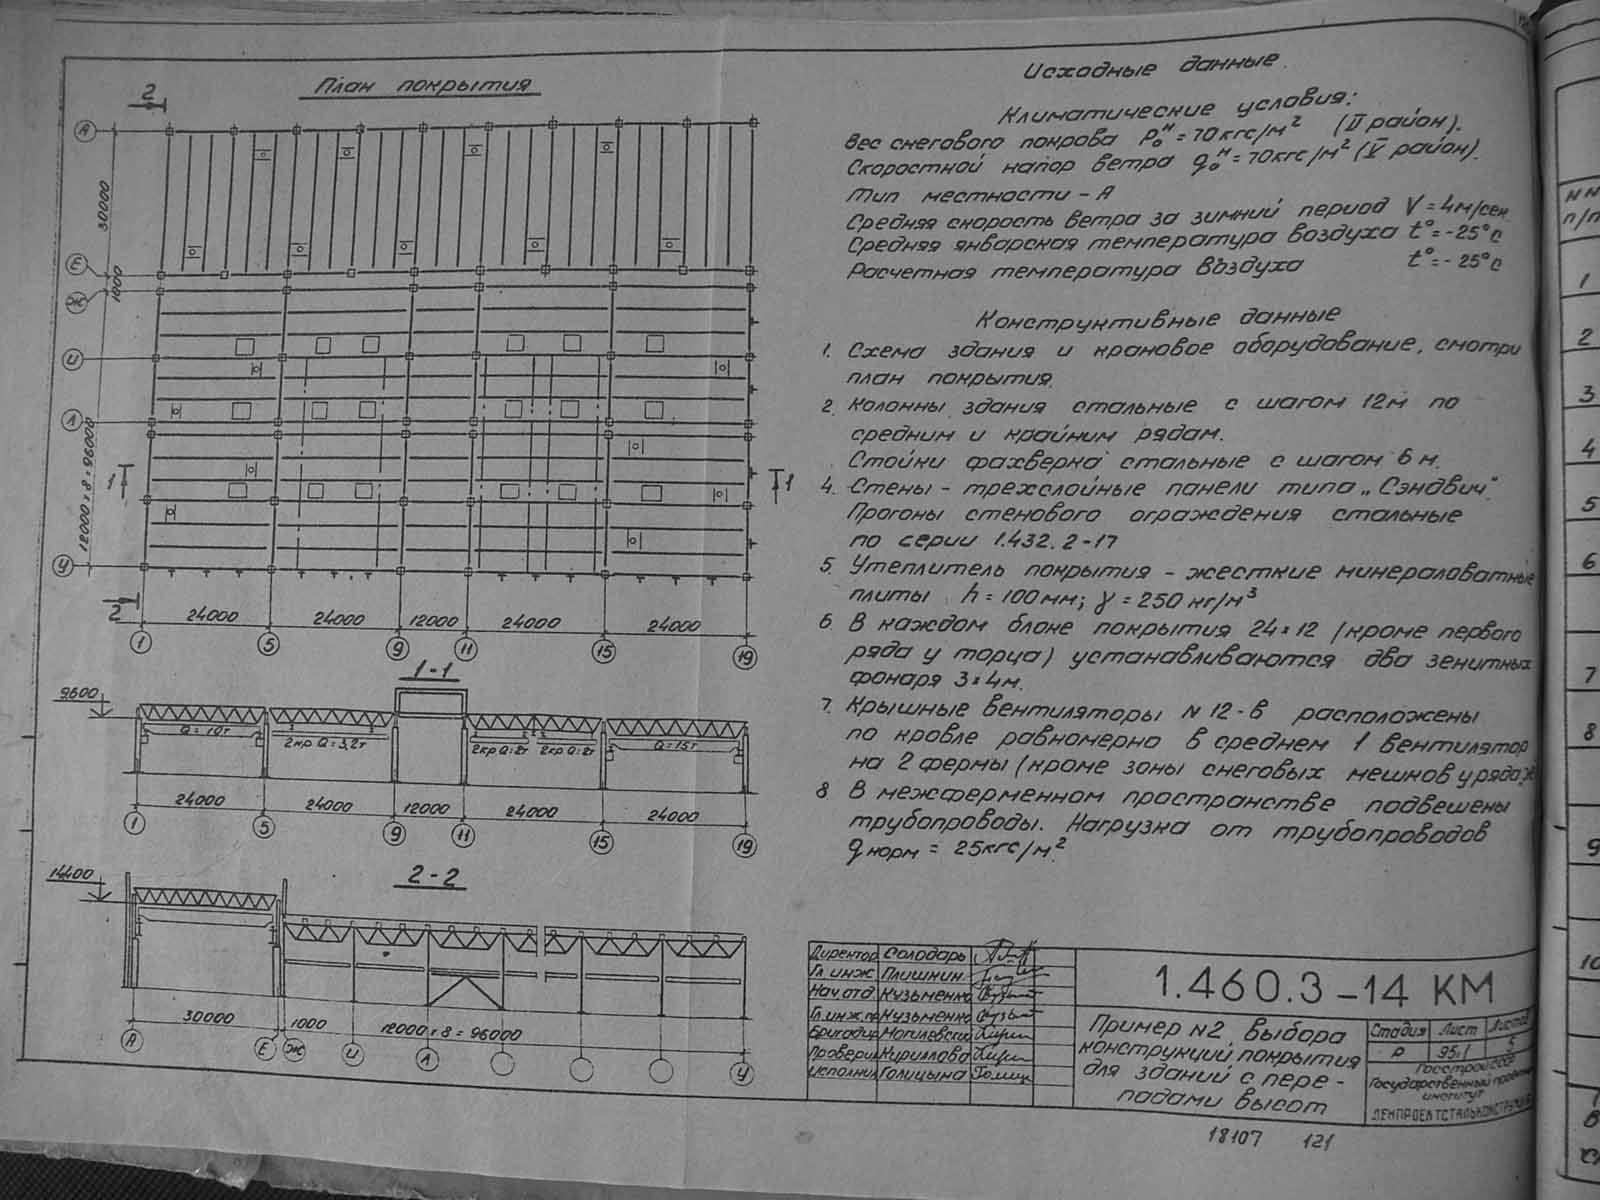 План покрытия
2
А
Е
Ж
И
Л
У
30000
1000
12000 x 8 = 96000
1
1
2
24000
24000
12000
24000
24000
1
5
9
11
15
19
1-1
9.600
Q = 10т
2кр Q = 3,2т
2кр Q = 2т
2кр Q = 2т
Q = 15т
24000
24000
12000
24000
24000
1
5
9
11
15
19
2-2
14.400
30000
1000
12000 x 8 = 96000
А
Е
Ж
И
Л
У
Исходные данные.
Климатические условия:
Вес снегового покрова Pₒᴴ = 70 кгс/м² (II район).
Скоростной напор ветра qₒᴴ = 70 кгс/м² (V район).
Тип местности – А
Средняя скорость ветра за зимний период V = 4м/сек
Средняя январская температура воздуха t° = -25°с
Расчетная температура воздуха t° = -25°с
Конструктивные данные
1. Схема здания и крановое оборудование, смотри
план покрытия.
2. Колонны здания стальные с шагом 12м по
средним и крайним рядам.
Стойки фахверка стальные с шагом 6 м.
4. Стены - трехслойные панели типа „Сэндвич".
Прогоны стенового ограждения стальные
по серии 1.432.2-17
5. Утеплитель покрытия - жесткие минераловатные
плиты h = 100мм; γ = 250 кг/м³
6. В каждом блоке покрытия 24x12 (кроме первого
ряда у торца) устанавливаются два зенитных
фонаря 3x4м.
7. Крышные вентиляторы N 12-В расположены
по кровле равномерно в среднем 1 вентилятор
на 2 фермы (кроме зоны снеговых мешков у ряда Ж
8 В межферменном пространстве подвешены
трубопроводы. Нагрузка от трубопроводов
qнорм = 25кгс/м²
Директор Солодарь
Гл инж Плишкин
Нач отд Кузьменко
Гл.инж.пр Кузьменко
Бригадир Могилевская
Провери Кириллова
Исполнил Голицына
1.460.3-14 КМ
Пример N2. Выбора
конструкций покрытия
для зданий с пере-
падами высот
Стадия Лист Листов
Р 95.1 5
Госстрой СССР
Государственный проектный
институт
ЛЕНПРОЕКТСТАЛЬКОНСТРУКЦИЯ
18107 121
NN
п/п
1
2
3
4
5
6
7
8
9
10